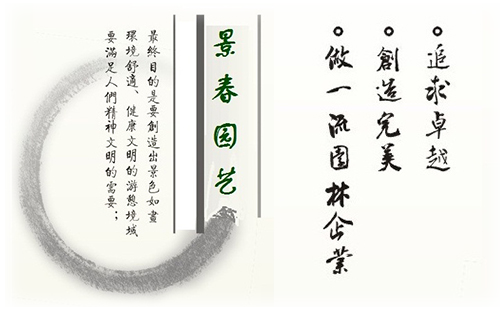 追求卓越
創造完美
做一流園林企業
景春园艺
最終目的是要創造出景色如畫
環境舒適、健康文明的游憩境域
要滿足人們精神文明的需要；